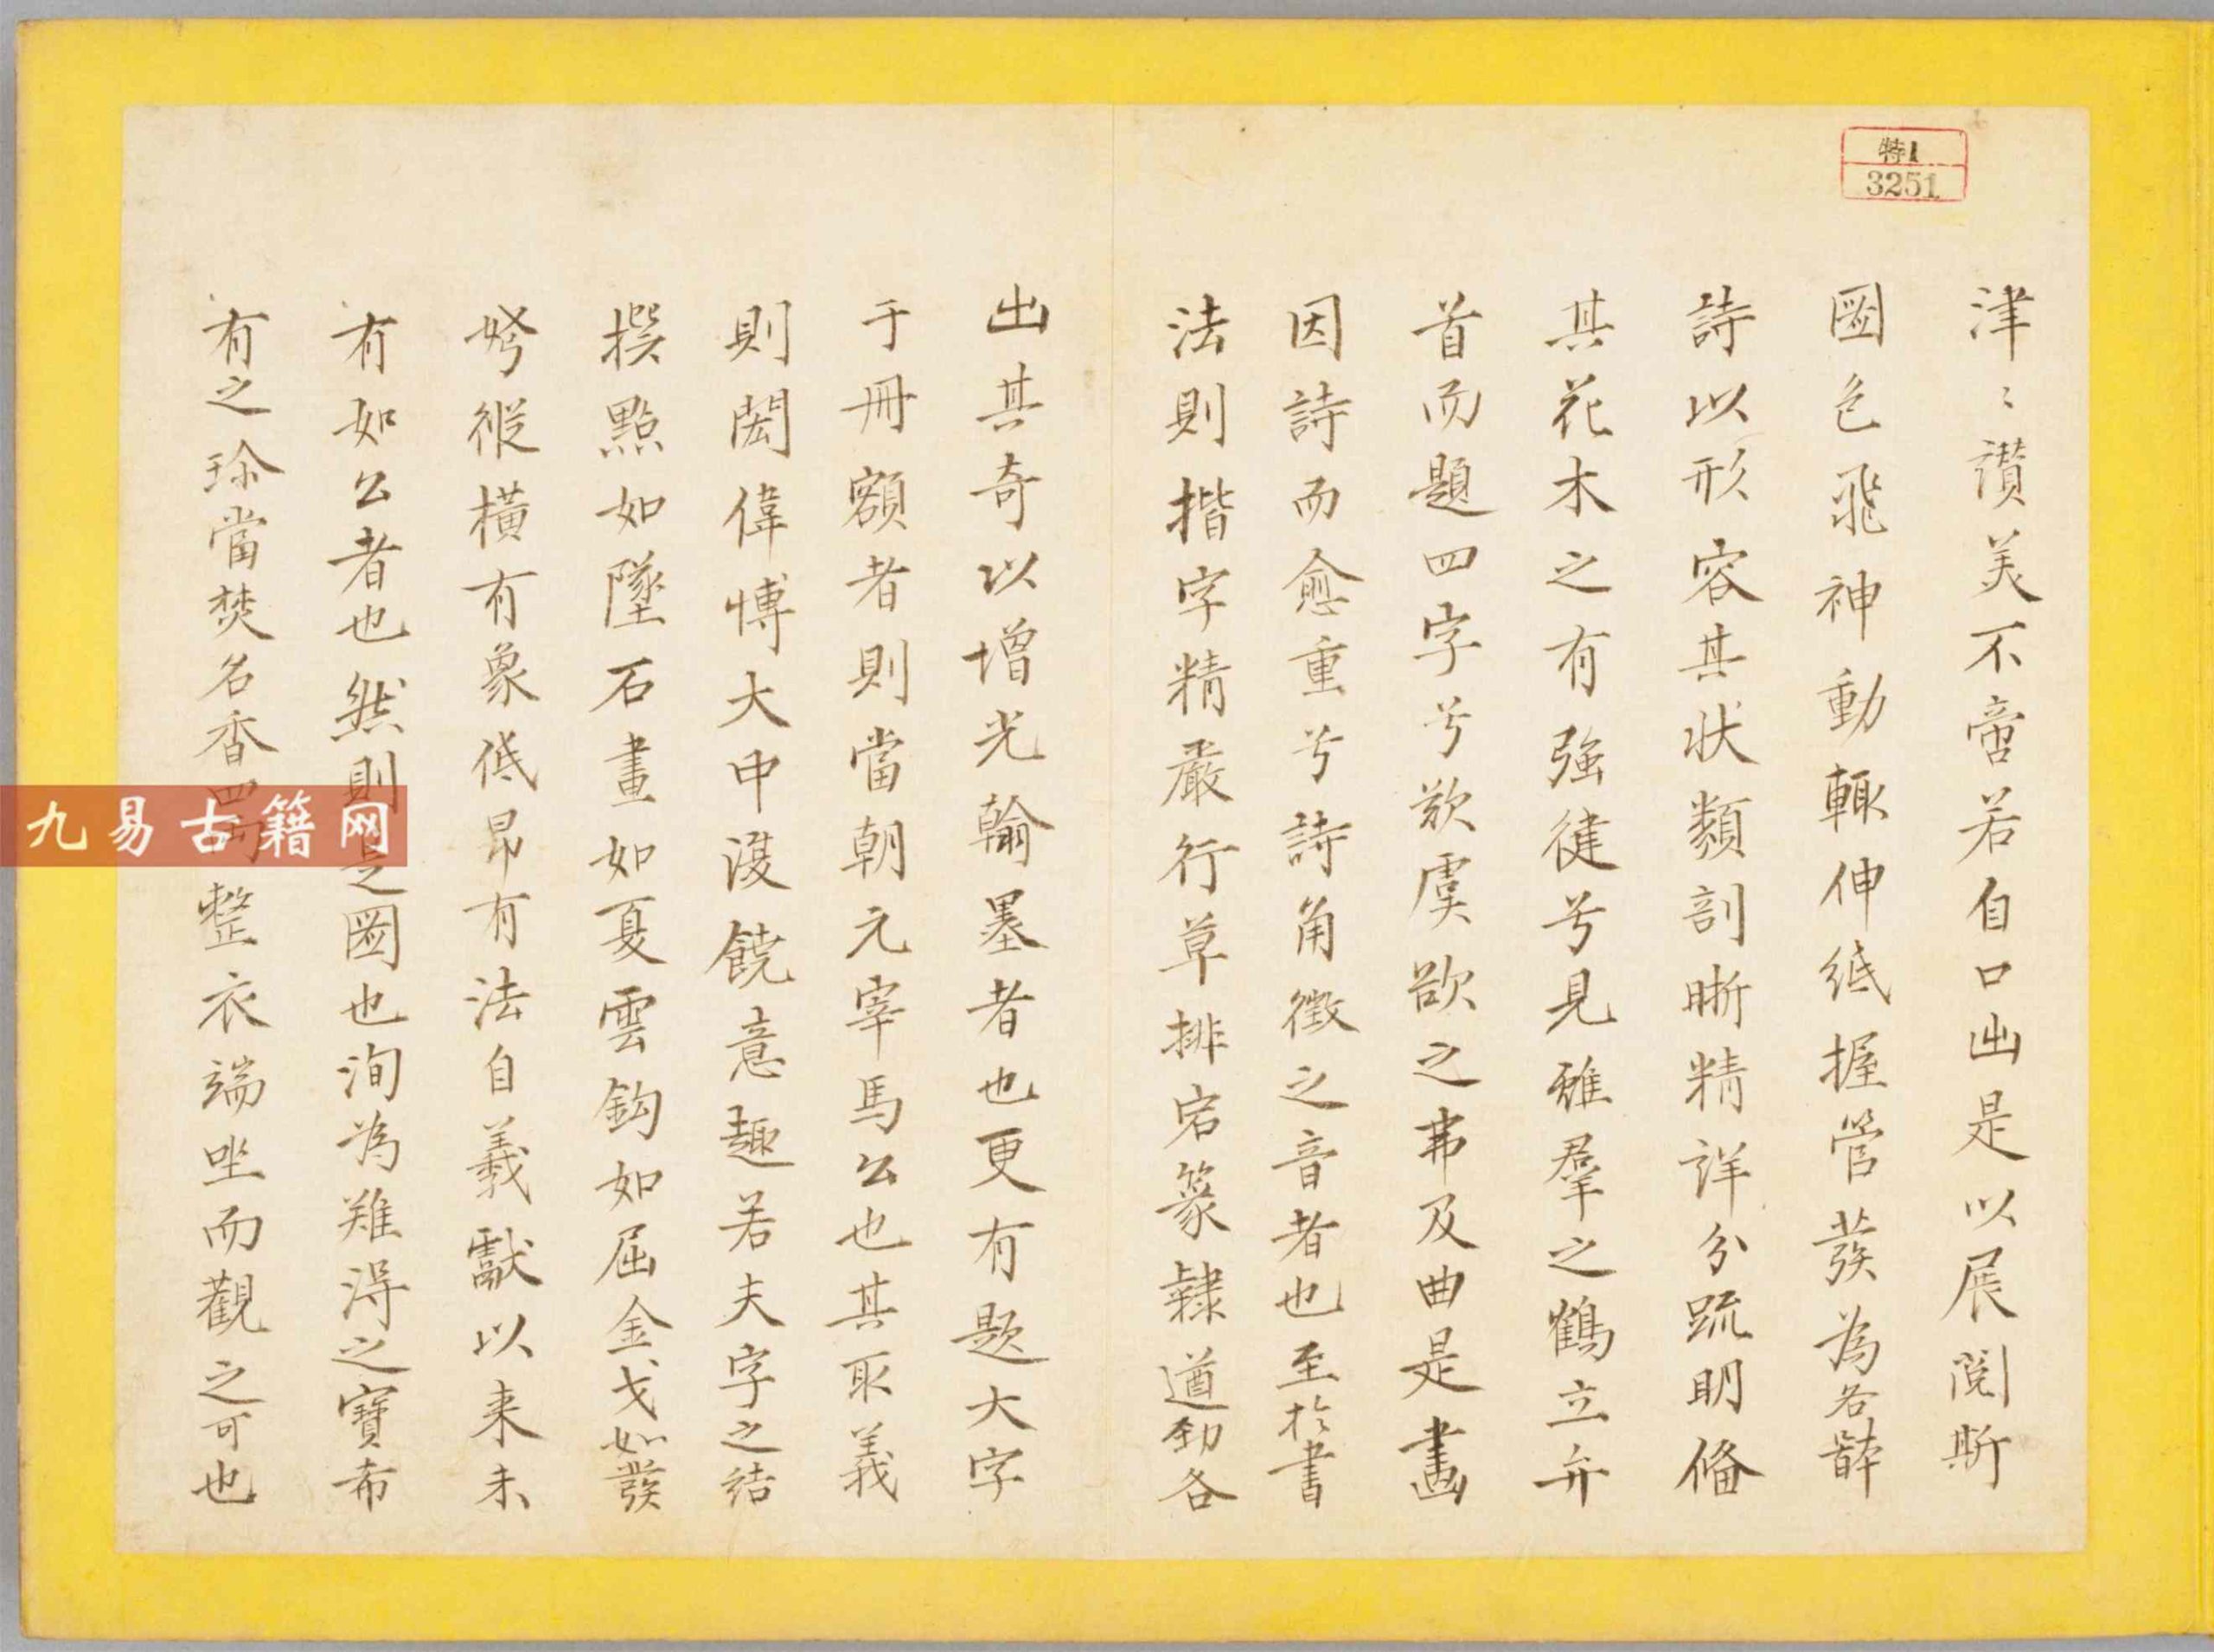 特1
3251
津〻讃美不啻若自口出是以展閲斯
圖色飛神動輒伸紙握管發為各辭
詩以形容其狀類剖晰精詳分疏明俻
其花木之有強健兮見雞羣之鶴立弁
首而題四字兮歎虞欲之弗及曲是畫
因詩而愈重兮詩角徵之音者也至扵書
法則揩字精嚴行草排宕篆隸遒勁各
出其奇以增光翰墨者也更有題大字
于冊額者則當朝元宰馬公也其取義
則閎偉博大中復饒意趣若夫字之結
撰點如墜石畫如夏雲鈎如屈金戈如發
弩縱橫有象低昻有法自義獻以来未
有如公者也然則是圖也洵為難淂之寶希
有之珍當焚名香整衣端坐而觀之可也
九易古籍网